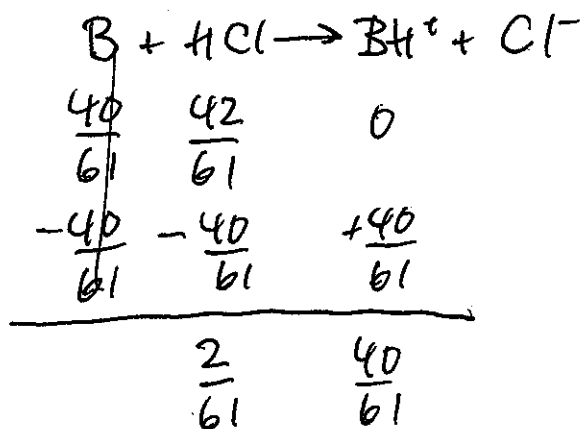 B + HCl → BH⁺ + Cl⁻
40/61 42/61 0
-40/61 -40/61 +40/61
2/61 40/61